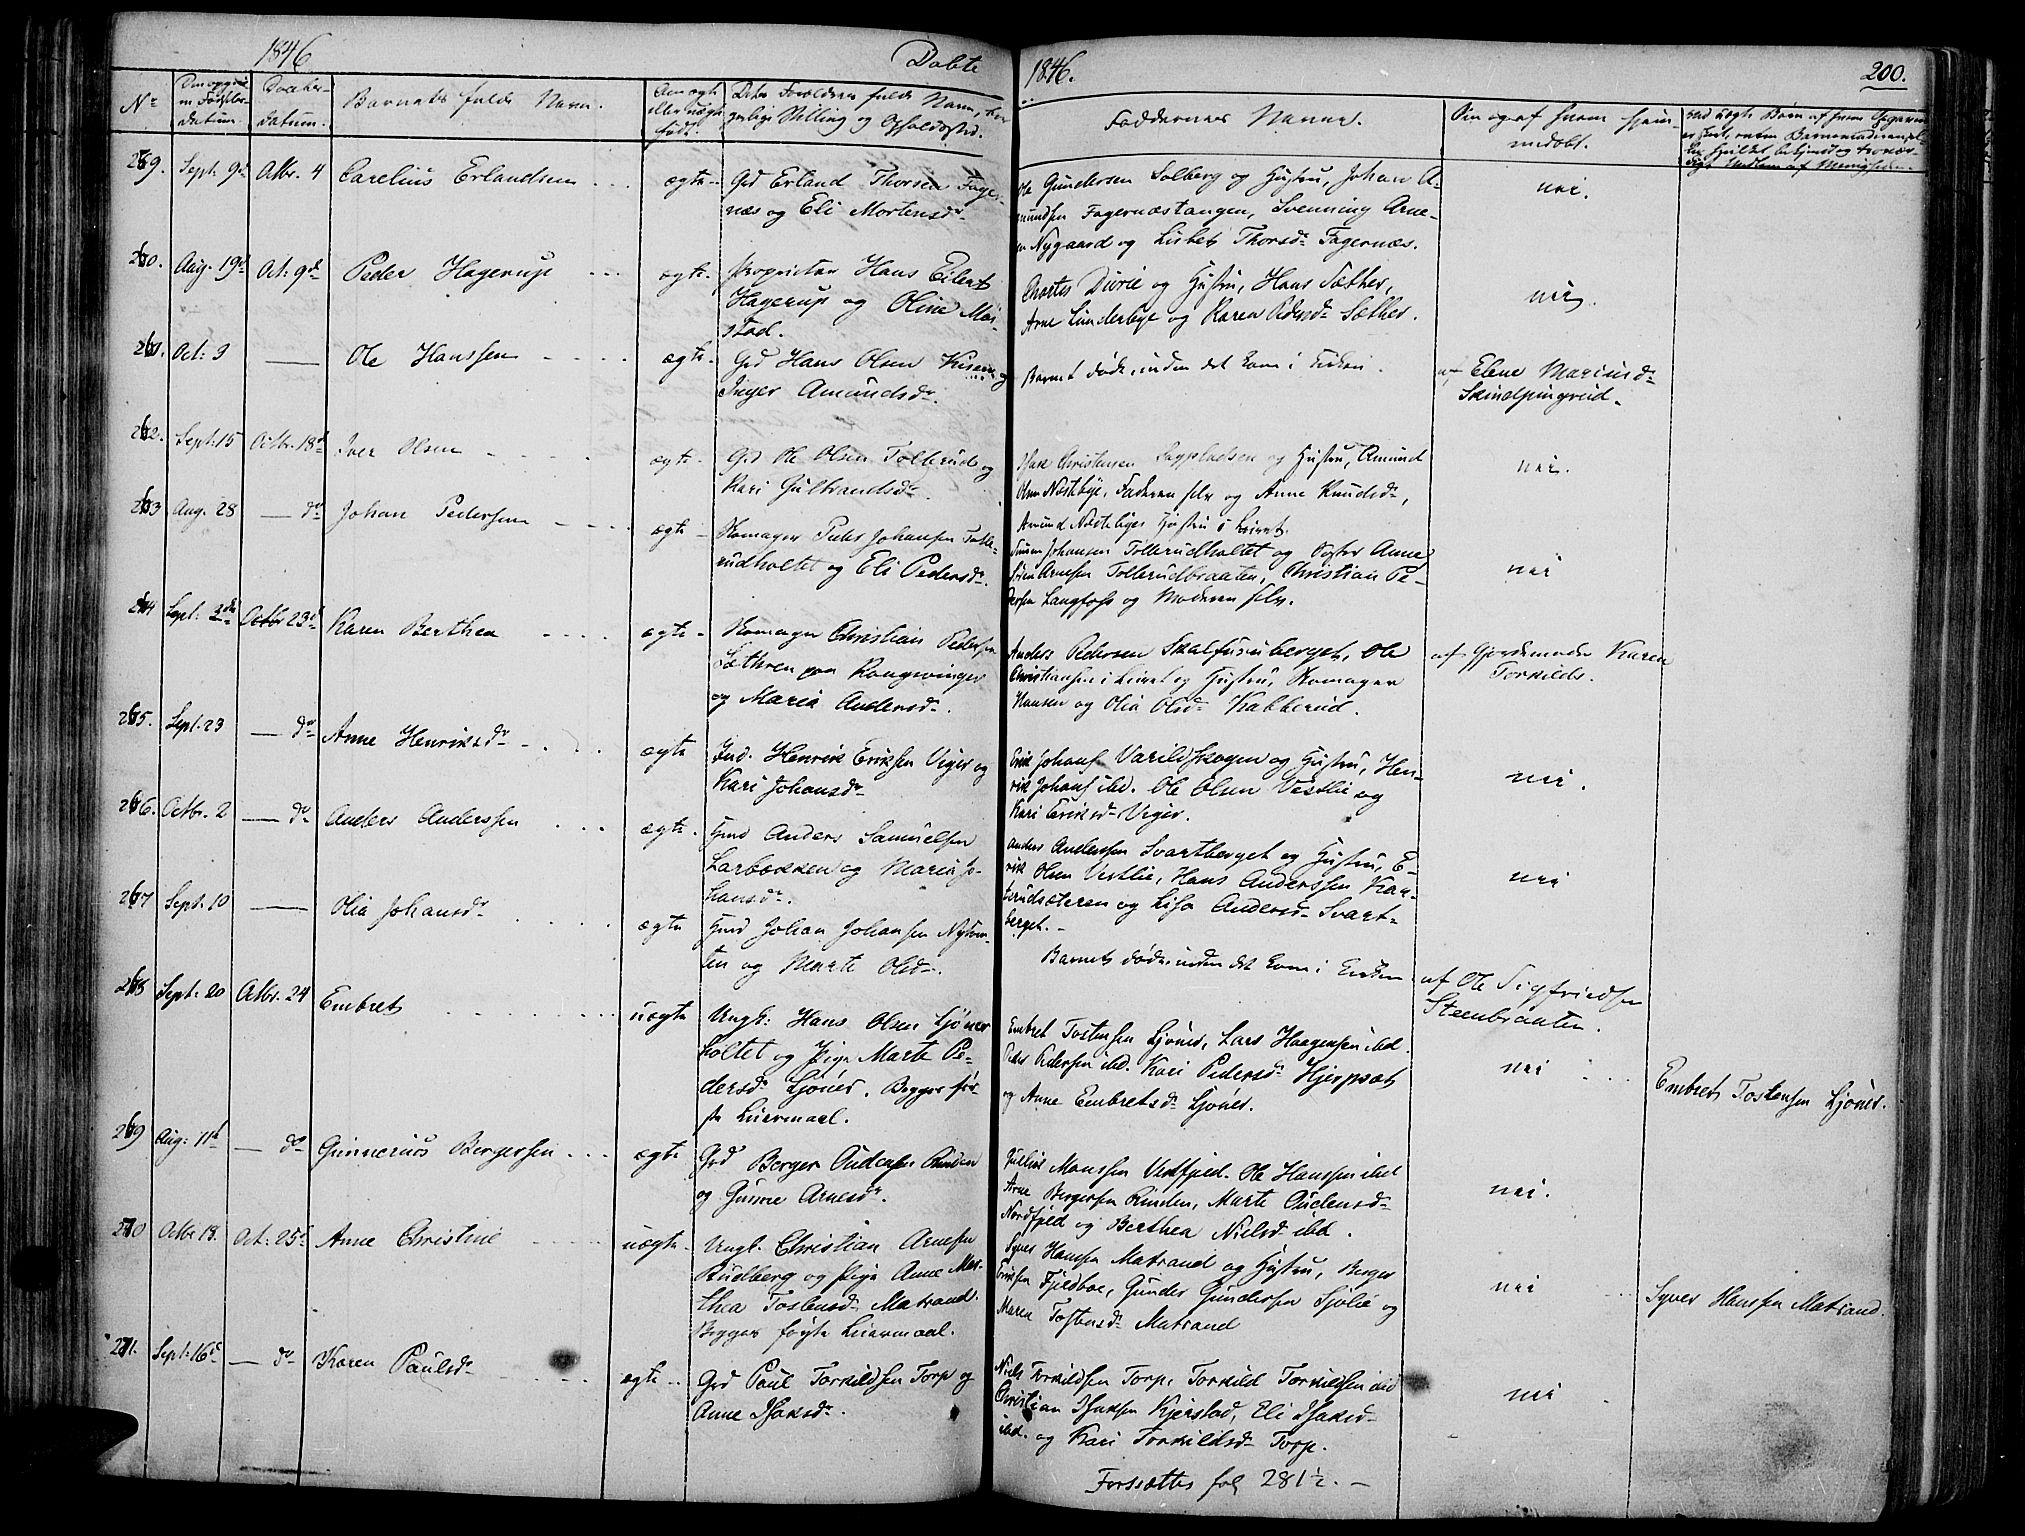 1846
Døbte
1846.
200.
No
Den opgivne Fødselsdatum.
Daabsdatum.
Barnets fulde Navn.
Om ægte eller uægte født.
Dets Forældres fulde Navn, borgerlige Stilling og Opholdssted.
Faddernes Navne.
Om og af hvem hjemmedøbt.
269.
Sept. 9de
Octbr. 4
Carelius Erlandsen
ægte
Grd Erland Thorsen Fager-
næs og Eli Mortensdr.
Ole Gundersen Solberg og Hustru, Johan A-
mundsen Fagernæstangen, Svenning Arne-
sen Nygaard og Lisbet Thorsdr Fagernæs.
nei.
260.
Aug. 19de
Oct: 9de
Peder Hagerup
ægte
Proprietær Hans Eilert
Hagerup og Oline Mei-
stad.
Chartes Durie og Hustru, Hans Sæther,
Arne Lunderbye og Karen Pedersdr Sæther.
nei.
261.
Oct: 9
Ole Hanssen
ægte
Grd Hans Olsen Kisem og
Inger Amundsdr.
Barnet døde, inden det kom i Kirken.
af Elene Mariusdr
Skindpungrud.
262.
Sept: 15
Octbr. 18de
Iver Olsen
ægte
Grd Ole Olsen Tollerud og
Kari Gulbrandsdr.
Isak Christensen Sagpladsen og Hustru, Amund
Olsen Næstebye, Faderen selv og Anne Knudsdr,
Amund Næstebyes Hustru i Leiret
nei.
263
Aug. 28
do
Johan Pedersen
ægte
Skomager Peder Johansen Tolle-
rudholtet og Eli Pedersdr.
Simen Johansen Tollerudholtet og Søster Anne
Søren Arnesen Tollerudbraaten, Christian Pe-
dersen Langfoss og Moderen selv.
nei
264
Sept: 3die
Octbr 23de
Karen Berthea
ægte
Skomager Christian Pedersen
Sæthren paa Kongsvinger
og Maria Andersdr.
Anders Pedersen Skalfurruberget, Ole
Christiansen i Leiret og Hustru, Skomager
Hansen og Olia Olsdr Kabberud.
af Gjordemoder Karen
Torkilds.
265.
Sept. 23
do
Anne Henriksdr
ægte
Ind. Henrik Eriksen Viger og
Kari Johansdr
Erik Johans. Varildskogen og Hustru, Hen-
rik Johans. ibid. Ole Olsen Vestlie og
Kari Eriksdr Viger.
nei.
266.
Octbr. 2
do
Anders Anderssen
ægte
Hmd Anders Samuelsen
Larbækken og Maria Jo-
hansdr.
Anders Anderssen Svartberget og Hustru, E-
rik Olsen Vestlie, Hans Anderssen Kar-
terudsæteren og Lisa Andersdr Svart-
berget.
nei
267
Sept. 10
Olia Johansdr
ægte
Hmd Johan Johansen Nytom-
ten og Marte Olsdr.
Barnet døde, inden det kom i Kirken
af Ole Sigfriedsen
Steenbraaten.
268
Sept: 20
Octbr. 24
Embret
uægte
Ungk: Hans Olsen Ljøner-
holtet og Pige Marte Pe-
dersdr Ljøner. Begges før-
ste Leiermaal.
Embret Tostensen Ljøner, Lars Haagensen ibid.
Peder Pedersen ibid. Kari Pedersdr Hjerpsæt
og Anne Embretsdr Ljøner.
nei
Embret Tostensen Ljøner.
269
Aug: 11te
do
Gunnerius Bergersen
ægte
Grd Berger Oudensen Runden
og Gunne Arnesdr.
Julius Monssen Vestfjed. Ole Hanssen ibid
Arne Bergersen Runden, Marte Oudensdr
Nordfjed og Berthea Nielsdr ibid.
nei.
270
Octbr 18.
Oct: 25de
Anne Christine
uægte
Ungk. Christian Arnesen
Rudberg og Pige Anne Mar-
thea Tostensdr Matrand.
Begges første Leiermaal.
Syver Hansen Matrand og Hustru, Berger
Eriksen Fjeldboe, Gunder Gundersen Sjølie og
Maren Tostensdr Matrand
nei
Syver Hanssen Matrand.
271.
Sept: 16de
do
Karen Paulsdr
ægte
Grd Paul Torkildsen Torp og
Anne Isaksdr.
Niels Torkildsen Torp, Torkild Torkildsen ibid
Christian Isaksen Kjerstad, Eli Isaksdr
ibid. og Kari Torkildsdr Torp.
nei
Forsættes fol 281½.